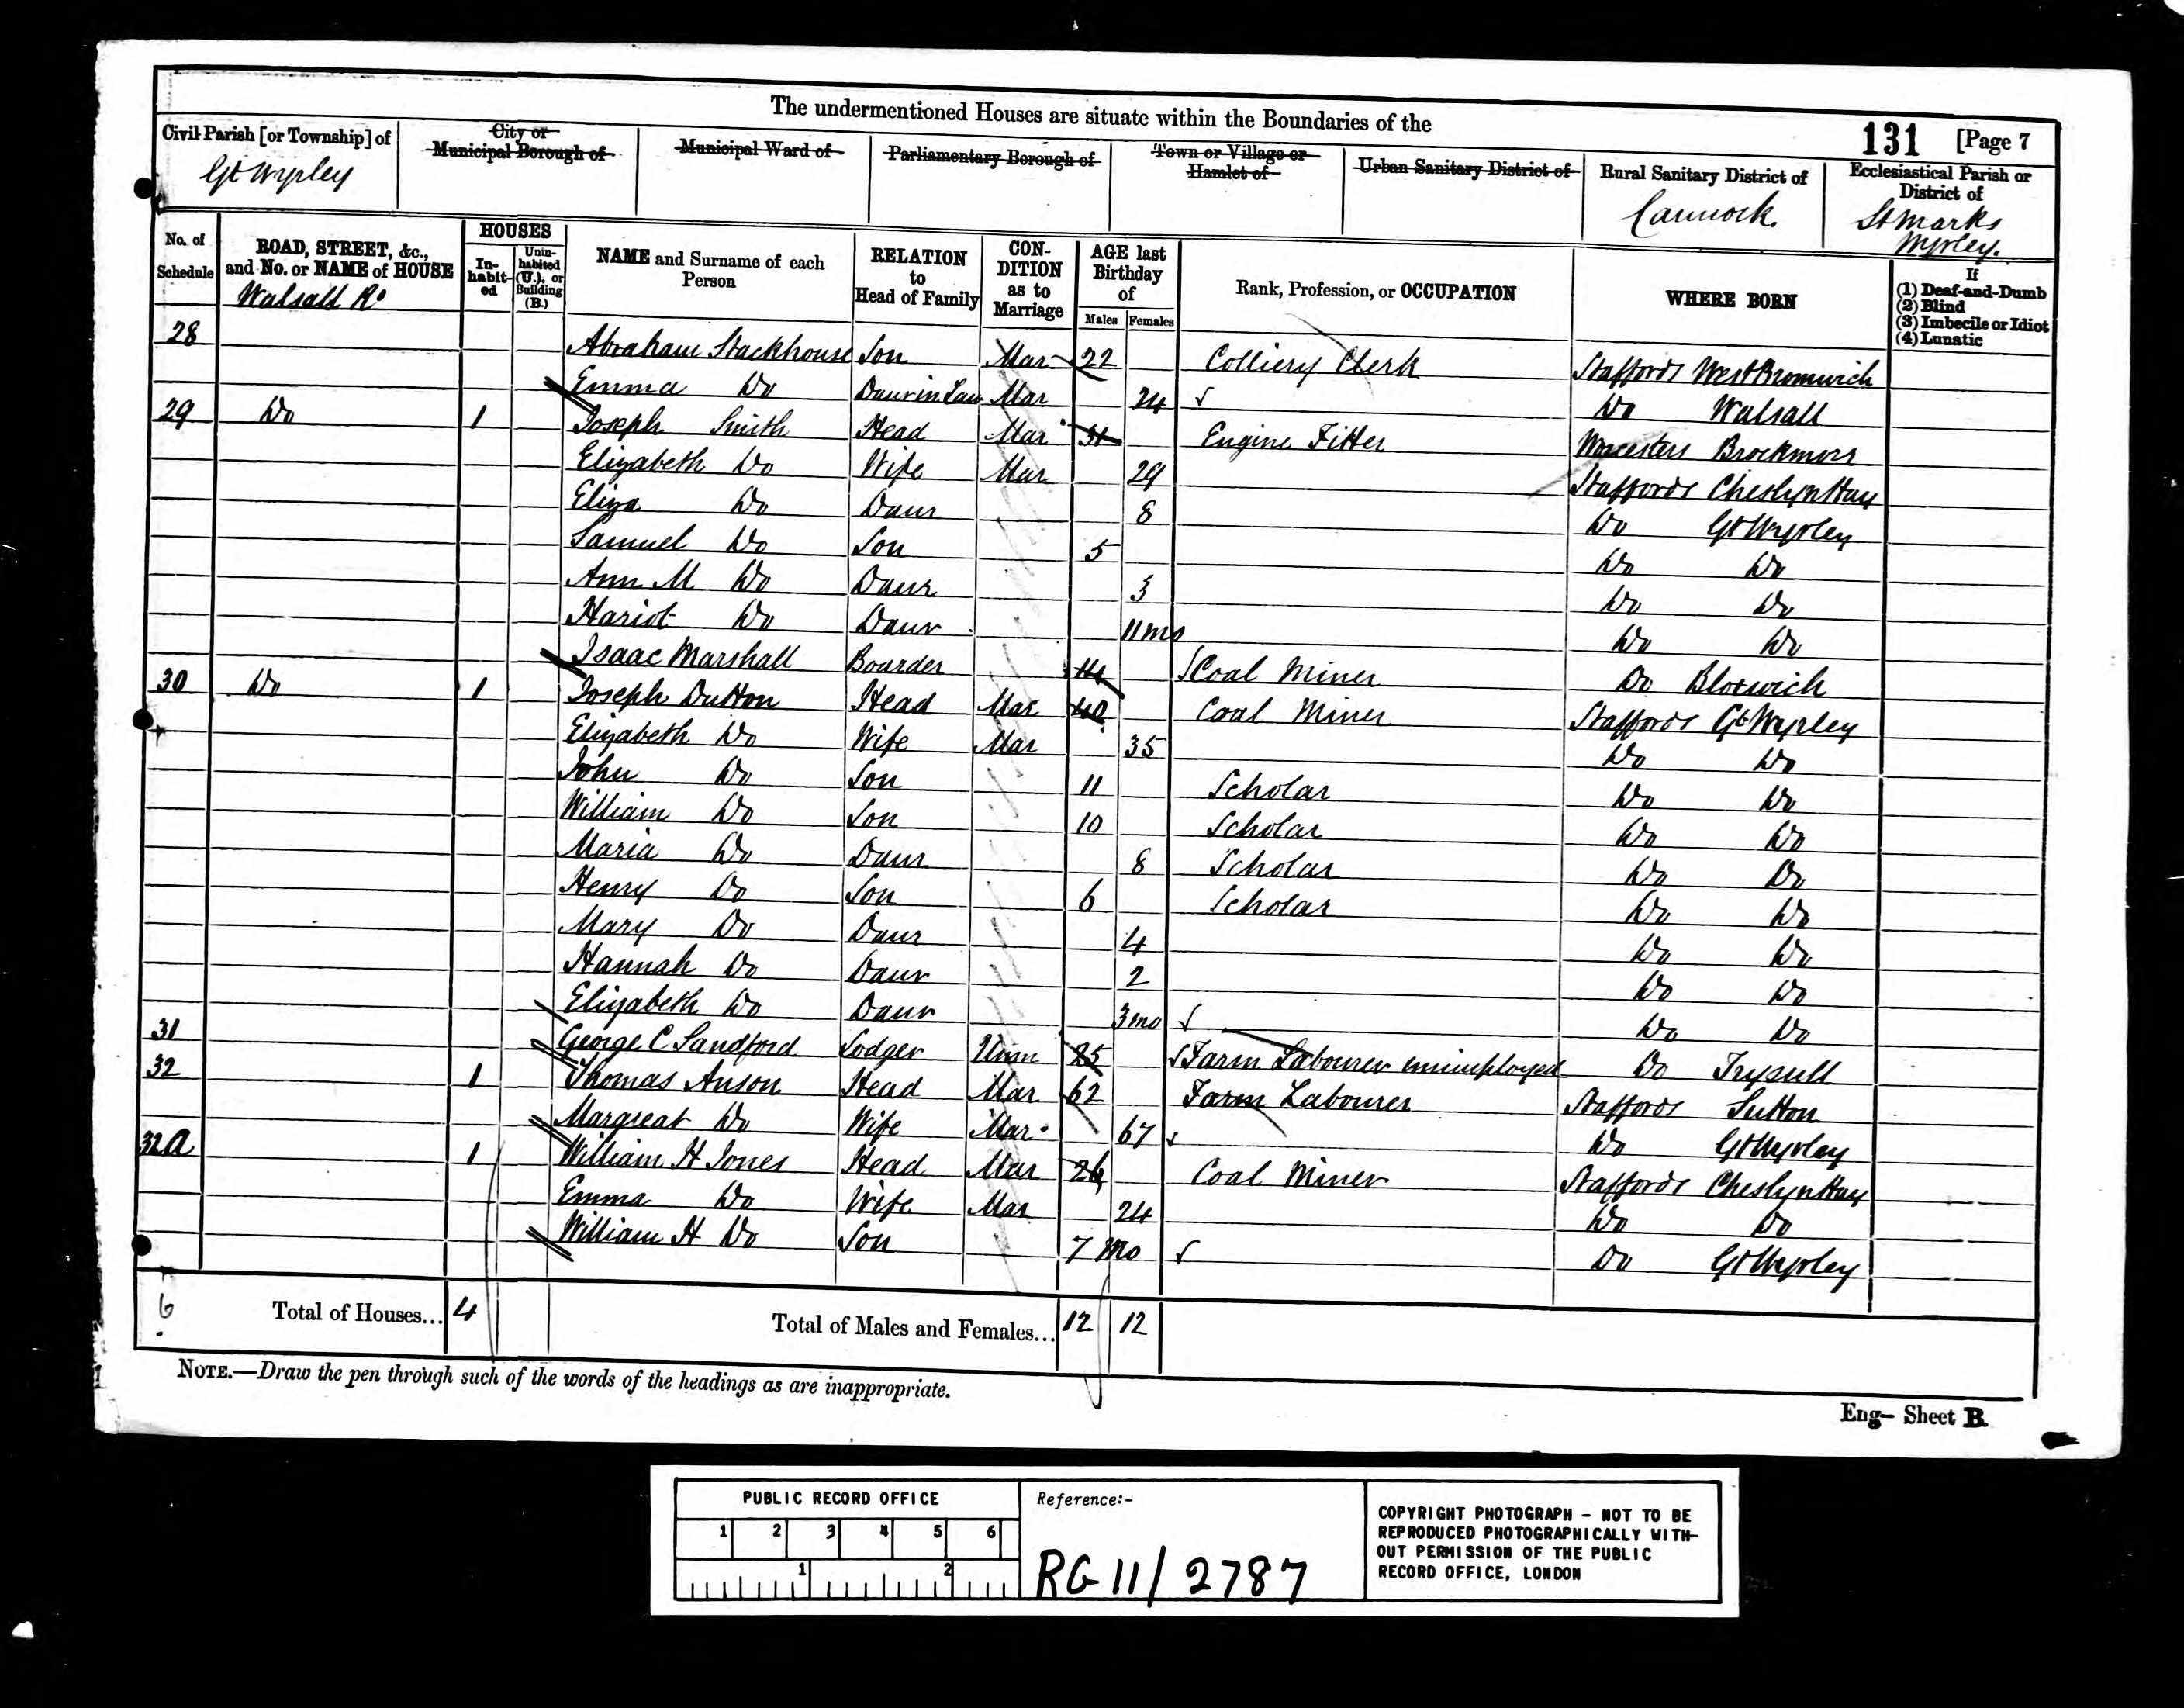 The undermentioned Houses are situate within the Boundaries of the
131 [Page 7
Civil Parish [or Township] of
Gt Wyrley
City or
Municipal Borough of
Municipal Ward of
Parliamentary Borough of
Town or Village or
Hamlet of
Urban Sanitary District of
Rural Sanitary District of
Cannock.
Ecclesiastical Parish or
District of
St Marks
Wyrley.
No. of
Schedule
ROAD, STREET, &c.,
and No. or NAME of HOUSE
HOUSES
In-
habit-
ed
Unin-
habited
(U.), or
Building
(B.)
NAME and Surname of each
Person
RELATION
to
Head of Family
CON-
DITION
as to
Marriage
AGE last
Birthday
of
Males Females
Rank, Profession, or OCCUPATION
WHERE BORN
If
(1) Deaf-and-Dumb
(2) Blind
(3) Imbecile or Idiot
(4) Lunatic
Walsall Rd
28 Abraham Stackhouse Son Mar 22 Colliery Clerk Staffords West Bromwich
Emma Do Daur in Law Mar 24 Do Walsall
29 Do 1 Joseph Smith Head Mar 31 Engine Fitter Worcesters Brockmore
Elizabeth Do Wife Mar 29 Staffords Cheslyn Hay
Eliza Do Daur 8 Do Gt Wyrley
Samuel Do Son 5 Do Do
Ann M Do Daur 3 Do Do
Hariot Do Daur 11 mo Do Do
Isaac Marshall Boarder 14 Coal Miner Do Bloxwich
30 Do 1 Joseph Dutton Head Mar 40 Coal Miner Staffords Gt Wyrley
Elizabeth Do Wife Mar 35 Do Do
John Do Son 11 Scholar Do Do
William Do Son 10 Scholar Do Do
Maria Do Daur 8 Scholar Do Do
Henry Do Son 6 Scholar Do Do
Mary Do Daur 4 Do Do
Hannah Do Daur 2 Do Do
Elizabeth Do Daur 3 mo Do Do
31 George C Sandford Lodger Unm 25 Farm Labourer unimployed Do Trysull
32 1 Thomas Anson Head Mar 62 Farm Labourer Staffords Sutton
Margreat Do Wife Mar 67 Do Gt Wyrley
32A 1 William H Jones Head Mar 26 Coal Miner Staffords Cheslyn Hay
Emma Do Wife Mar 24 Do Do
William H Do Son 7 Mo Do Gt Wyrley
6 Total of Houses... 4 Total of Males and Females... 12 12
NOTE.—Draw the pen through such of the words of the headings as are inappropriate.
Eng— Sheet B.
PUBLIC RECORD OFFICE
1 2 3 4 5 6
1 2
Reference:-
RG 11/2787
COPYRIGHT PHOTOGRAPH - NOT TO BE
REPRODUCED PHOTOGRAPHICALLY WITH-
OUT PERMISSION OF THE PUBLIC
RECORD OFFICE, LONDON